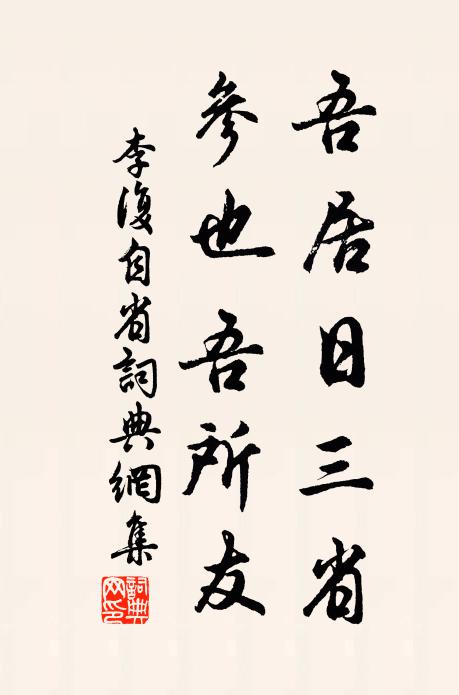 吾居日三省
參也吾所友
李復自省詞典網集
詞典網印